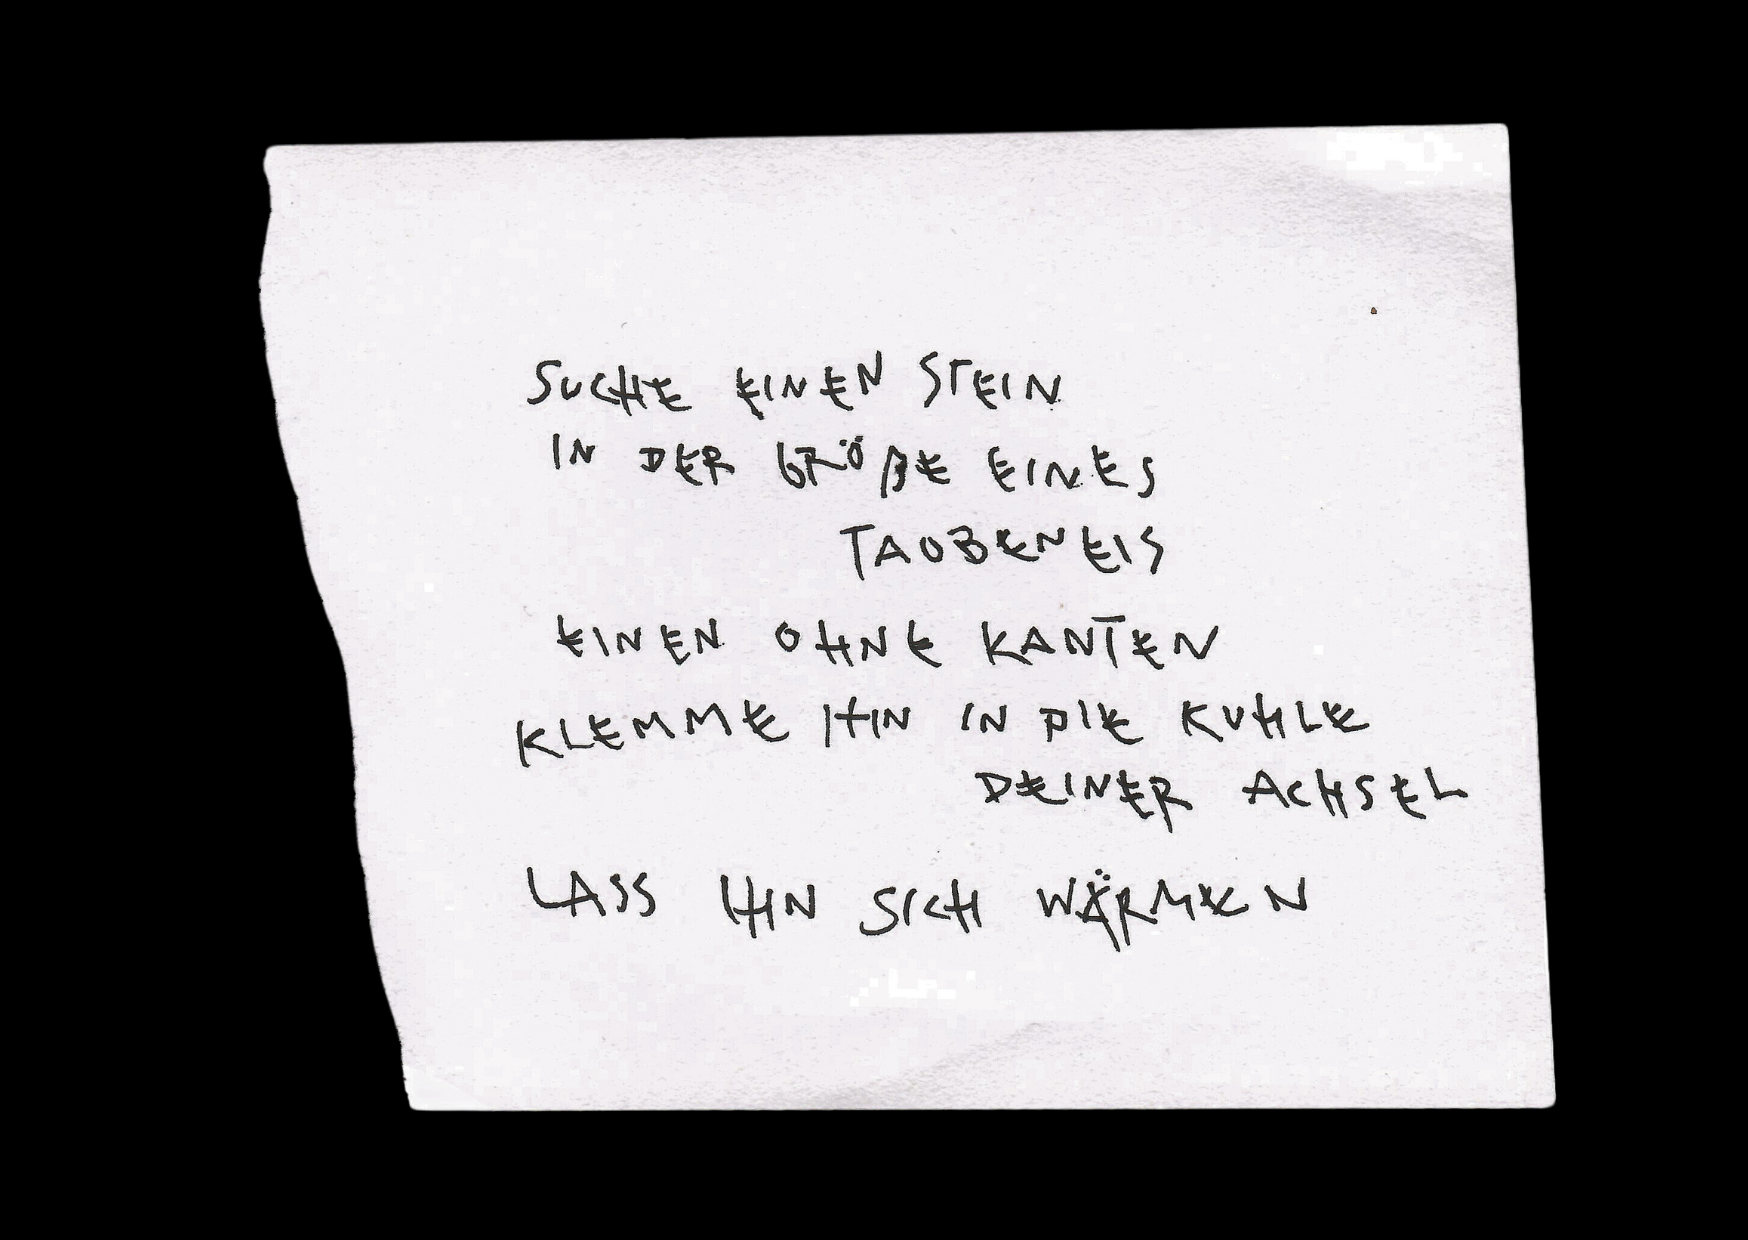 SUCHE EINEN STEIN
IN DER GRÖßE EINES
TAUBENEIS
EINEN OHNE KANTEN
KLEMME IHN IN DIE KUHLE
DEINER ACHSEL
LASS IHN SICH WÄRMEN